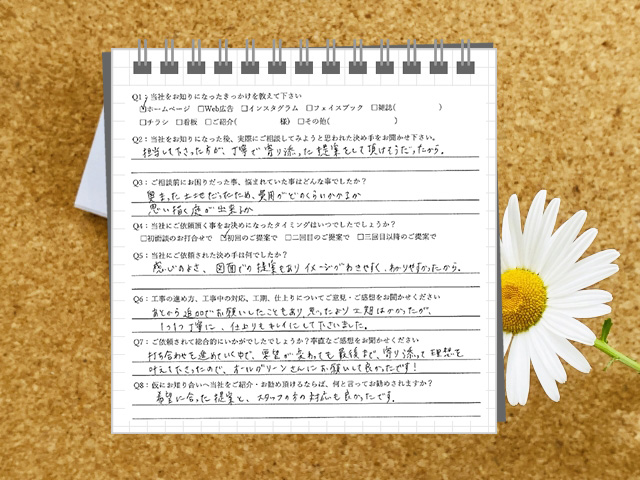 Q1：当社をお知りになったきっかけを教えて下さい
☑ホームページ □Web広告 □インスタグラム □フェイスブック □雑誌( )
□チラシ □看板 □ご紹介( 様) □その他( )
Q2：当社をお知りになった後、実際にご相談してみようと思われた決め手をお聞かせ下さい。
担当して下さった方が、丁寧で寄り添った提案をして頂けそうだったから。
Q3：ご相談前にお困りだった事、悩まれていた事はどんな事でしたか？
奥まった土地だったため、費用がどのくらいかかるか
思い描く庭が出来るか
Q4：当社にご依頼頂く事をお決めになったタイミングはいつでしたでしょうか？
□初面談のお打合せで ☑初回のご提案で □二回目のご提案で □三回目以降のご提案で
Q5：当社にご依頼された決め手は何でしたか？
感じのよさ、図面での提案もあり イメージがわきやすく、わかりやすかったから。
Q6：工事の進め方、工事中の対応、工期、仕上りについてご意見・ご感想をお聞かせください
あとから追加でお願いしたこともあり、思ったより工期はかかったが、
1つ1つ丁寧に、仕上りもキレイにして下さいました。
Q7：ご依頼されて総合的にいかがでしたでしょうか？率直なご感想をお聞かせください
打ち合わせを進めていく中で、要望が変わっても最後まで、寄り添って理想を
叶えて下さったので、オールグリーンさんにお願いして良かったです！
Q8：仮にお知り合いへ当社をご紹介・お勧め頂けるならば、何と言ってお勧めされますか？
希望に合った提案と、スタッフの方の対応も良かったです。